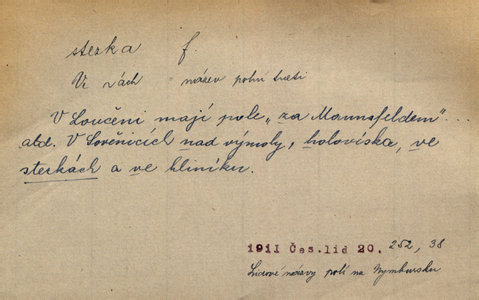 stezka f.
Ve zkách název polní trati
V Loučeni mají pole „za Mannsfeldem"...
atd. V Lověnicích nad výmoly, holoviska, ve
stezkách a ve kliníku.
1911 Čes.lid 20. 252, 38
Lidové názvy polí na Nymbursku